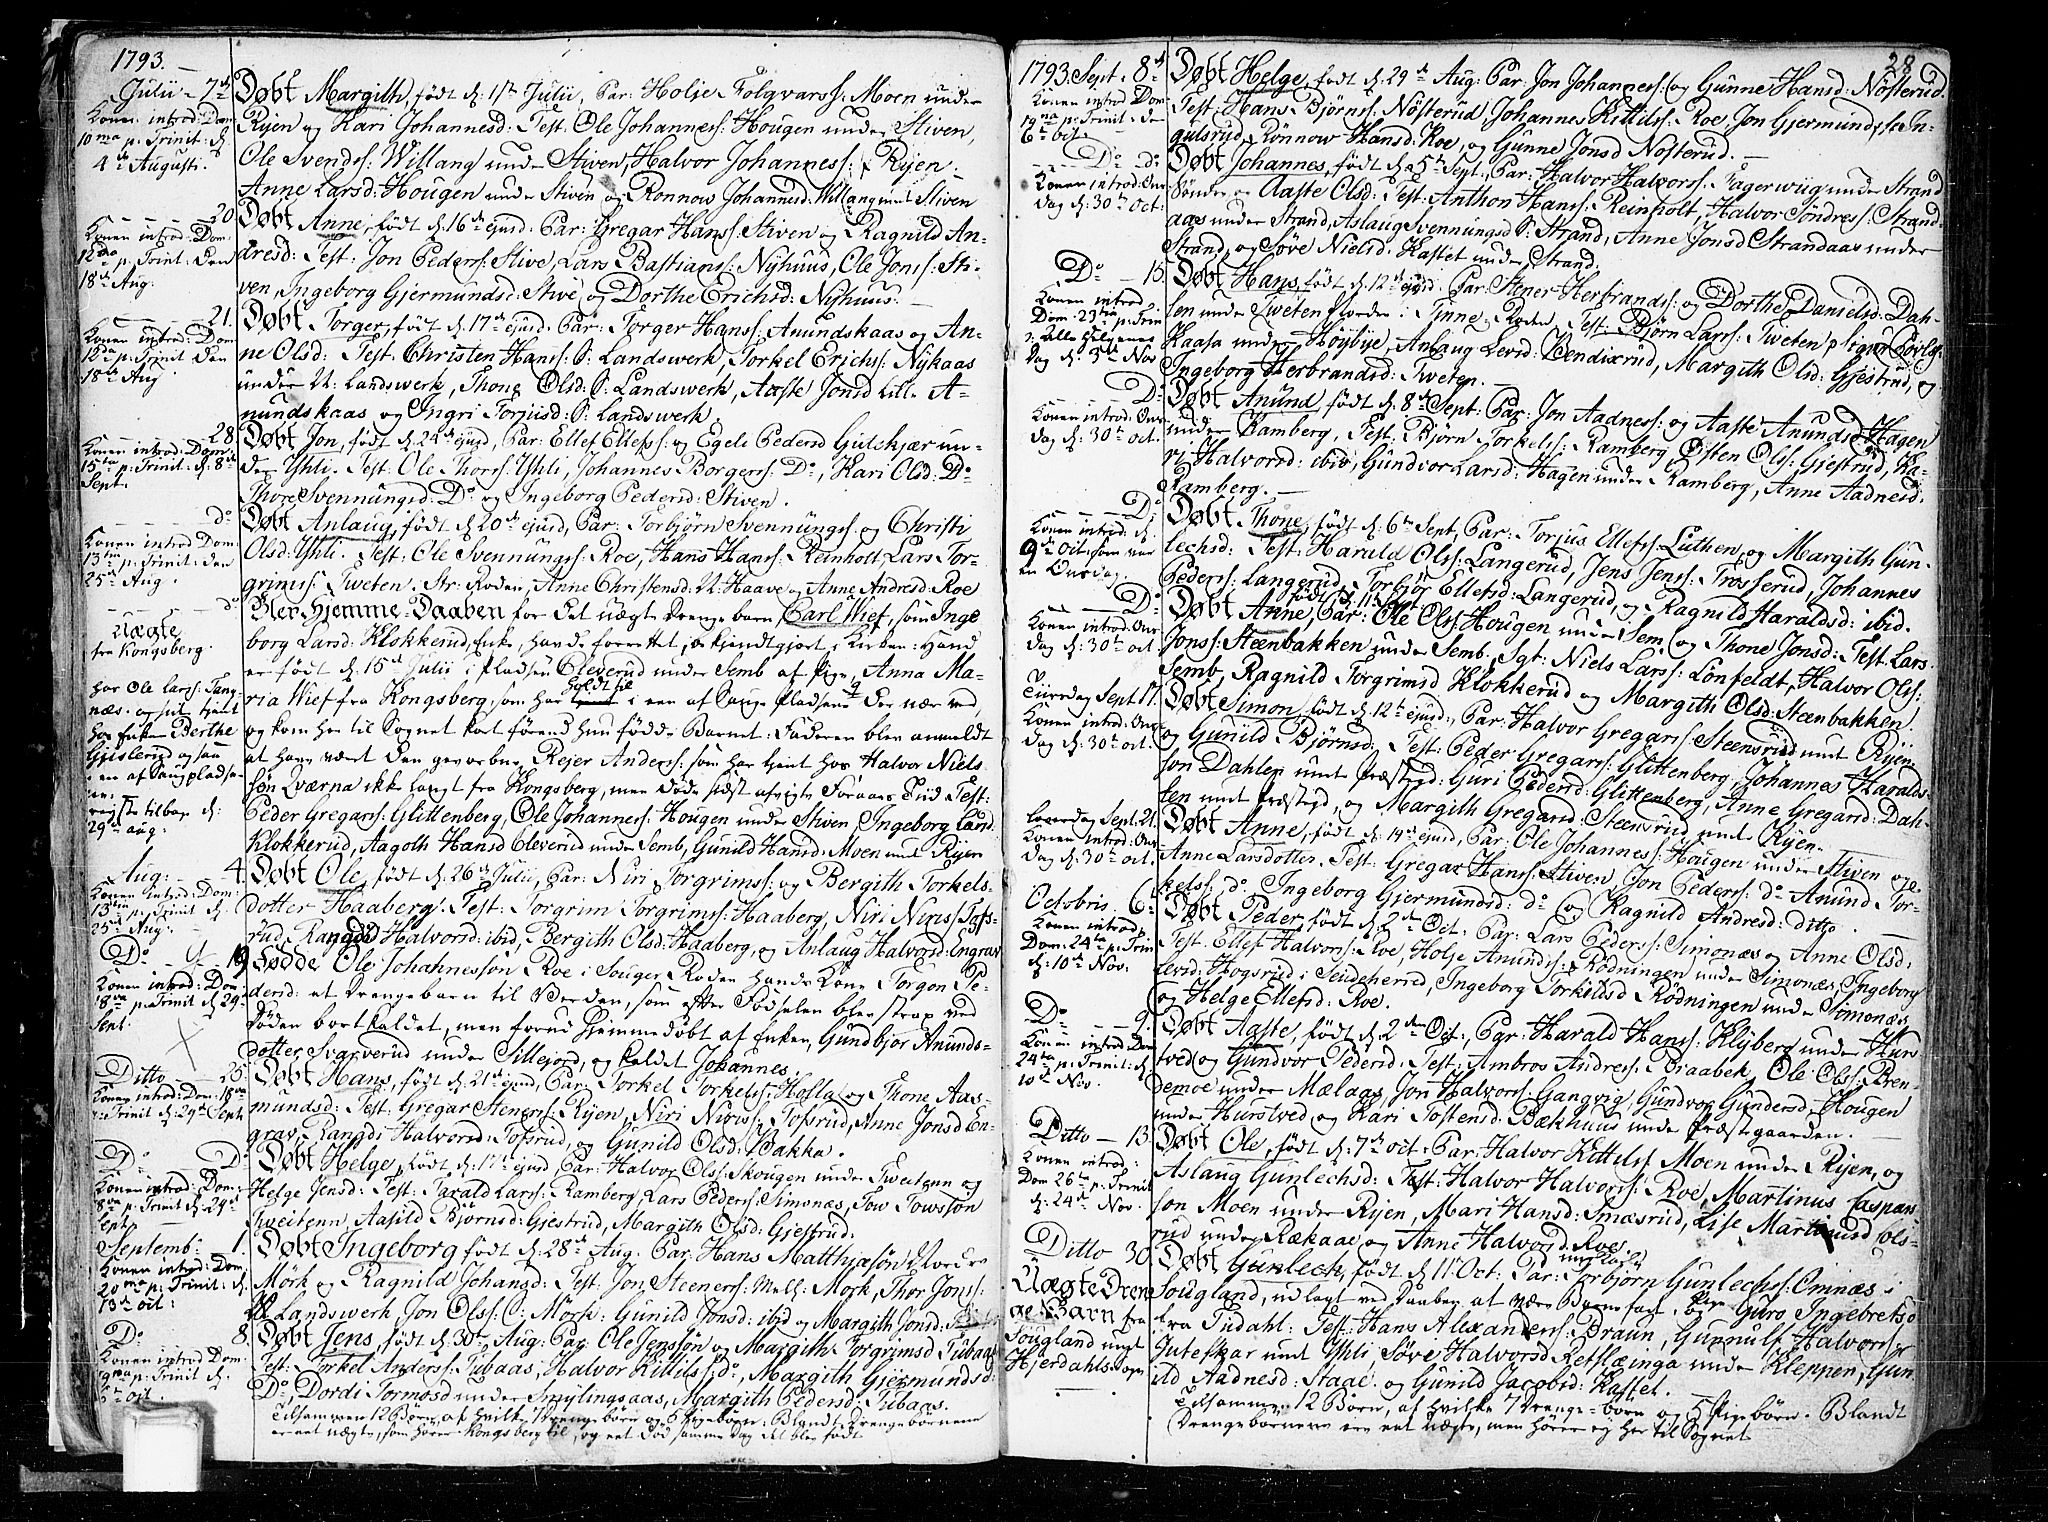 1793.
Julii 7de
Konen introd: Dom:
10ma p: Trinit: d.
4de Augusti.
Døbt Margith, født d: 1ste Julii, Par: Holje Folqvarss: Moen under
Ryen og Kari Johannesd: Test. Ole Johanness: Hougen under Stiven,
Ole Svends: Willang under Stiven, Halvor Johanness: Ryen
Anne Larsd: Hougen under Stiven og Ronnow Johannesd: Willang unt Stiven
20
Konen introd: Dom:
12ma p: Trinit: den
18de Aug:
Døbt Anne, født d: 16de ejusd: Par: Gregar Hanss: Stiven og Ragnild An-
dresd: Test: Jon Peders: Stive, Lars Bastians: Nyhuus, Ole Jonss: Sti-
ven, Ingeborg Gjermundsd: Stive og Dorthe Erichsd: Nyhuus.
21.
Konen introd: Dom:
12ma p: Trinit den
18de Aug
Døbt Torger, født d: 17de ejusd: Par: Torger Hanss: Amundskaas og An-
ne Olsd: Test: Christen Hanss: S: Landswerk, Torkel Erichs: Nykaas
under N: Landswerk, Thone Olsd: S: Landswerk, Aaste Jonsd Lille A-
mundskaas og Ingri Torjusd: S: Landswerk.
28
Konen introd: Dom:
15ta p: Trinit: d: 8de
Sept.
Døbt Jon, født d: 24de ejusd, Par: Ellef Ellefss: og Egele Pedersd Gulskjær un-
der Yhli. Test: Ole Thorss: Yhli, Johannes Borgers: Do, Kari Olsd: Do
Thore Svennungsd: Do og Ingeborg Pedersd: Stiven.
do
Konen introd: Dom:
13tia p: Trinit: den
25de Aug
Døbt Anlaug, født d: 20de ejusd, Par: Torbjørn Svennungss: og Christi
Olsd: Yhli. Test: Ole Svennungs: Roe, Hans Hanss: Reinholt, Lars Tor-
grimss: Tweten. Str: Roden, Anne Christensd: N: Haave og Anne Andresd: Roe
do
Uægte
fra Kongsberg.
Blev Hjemme-Daaben for det uægte Drengebarn Carl Wief, som Inge
borg Larsd: Klokkerud, Enke, havde forrettet, bekjendtgjort i Kirken: Hand
er født d: 15de Julii i Pladsen Cleverud under Semb af Pige, Anna Ma-
ria Wief fra Kongsberg, som har holdt til i een af Saug-Pladsene der nær ved,
og kom her til Sognet kort førend hun fødde Barnet: Faderen blev anmeldt
at have været den gevorbne Rejer Anders: som har tient hos Halvor Niels-
søn Qværna ikke langt fra Kongsberg, men døde sidst afvigte Foraars Tiid Test:
Peder Gregars: Glittenberg, Ole Johanness: Hougen under Stiven, Ingeborg Larsd
Klokkerud, Aagoth Hansd Cleverud under Semb, Gunild Hansd: Moen unt Ryen
har Ole Larss: Tang-
næs, og sidt tjent
hos Enken Berthe
Gislerud og saa
i een af Saugpladse-
ne.
reiste tilbage d:
29de aug:
Aug: 4.
Konen introd: Dom:
13tia p: Trinit d.
25de Aug:
Døbt Ole, født d: 26de Julii, Par: Niri Torgrimss: og Bergith Torkels-
dotter Haaberg. Test: Torgrim Torgrimss: Haaberg, Niri Niriss: Tofs-
rud, Rangdi Halvorsd: ibid, Bergith Olsd: Haaberg, og Anlaug Halvorsd: Engrav
Do 19
Konen introd: Dom:
18va p: Trinit d 29de
Sept.
Fødde Ole Johannessøn Roe i Souger Roden hands Kone Torgon Pe-
dersd: et Drengebarn til Verden, som efter Fødselen blev strax ved
Døden bortkaldet, men forud Hjemmedøbt af Enken, Gundbjør Amunds-
dotter Svarverud under Sillejord, og kaldet Johannes.
Ditto 25
Konen introd: Dom: 18va
p: Trinit d. 29de Sept
Døbt Hans, født d: 21de ejusd, Par: Torkel Torkels: Hofla og Thone Aas-
mundsd: Test: Gregar Stenerss: Ryen, Niri Niriss, Tofsrud, Anne Jonsd En-
grav, Rangdi Halvorsd: Tofsrud, og Gunild Olsd: Bakka.
Do Do
Konen introd: Dom:
18va p: Trinit d. 29de
Sept
Døbt Helge, født d: 17de ejusd, Par: Halvor Olss: Skougen under Tweitenn og
Helge Jensd: Test: Tarald Larss: Ramberg, Lars Peders: Simonæs, Tow Towssøn
Tweitenn, Aasild Bjørnsd: Gjestrud, Margith Olsd: Gjestrud.
Septemb: 1.
Konen introd: Dom:
20ma p: Trinit: d.
13de Oct:
Døbt Ingeborg født d: 28de Aug: Par: Hans Matthiæsøn
Mørk og Ragnild Johansd: Test: Jon Steeners: Mell: Mørk, Thor Jons:
Landswerk Jon Olss: O: Mørk: Gunild Jonsd: ibid og Margith Jonsd:
Do 8
Konen introd Dom:
19ma p: Trinit d.
6te Oct
Døbt Jens, født d: 30te Aug: Par: Ole Jenssøn og Margith Torgrimsd Tubaas
Test: Torkel Anders: Tubaas, Halvor Kittils: do, Margith Gjermundsd:
Do: Dordi Tormosd: under Smylingsaas, Margith Pedersd: Tubaas.
Tilsammen 12 Børn, af hvilke 7 Drengebørn og 5 Pigebørn: Blandt Drengebørnene
er eet uægte, som hører Kongsberg til, og eet død samme Dag det blev født
28
1793. Sept. 8de
Konen introd Dom
19na p: Trinit: de
6te Oct.
Døbt Helge, født d. 29de Aug: Par: Jon Johanness: og Gunne Hansd: Nøsterud.
Test: Hans Bjørns: Nøsterud, Johannes Kittils: Roe, Jon Gjermunds: In-
gulsrud, Rønnow Hansd: Roe, og Gunne Jonsd Nøsterud.
Do do
Konen introd: Ons-
dag d: 30te Oct.
Døbt Johannes, født d: 5te Sept: Par: Halvor Halvorss: Fagerwiig under Strand
Søndre og Aaste Olsd: Test: Anthon Hanss: Reinholt, Halvor Søndres: Strand-
aas under Strand, Aslaug Svennungsd S: Strand, Anne Jonsd Strandaas under
Strand, og Søve Nielsd: Kastet under Strand.
Do 15
Konen introd
Dom: 23tia p: Trin
: Alle Helgenes
Dag d: 3de Nov
Døbt Hans, født d: 12te ejusd: Par: Stener Herbrands: og Dorthe Danielsd: Dah-
len under Tweten Nordre i Tinne-Roden Test: Bjørn Larss: Tweten,
Kaasa under Høybye, Anlaug Levsd: Bendixrud, Margith Olsd: Gjestrud, og
Ingeborg Herbrandsd: Tweten.
Do
Konen introd: Ons
dag d: 30te Oct.
Døbt Anund, født d: 8de Sept: Par: Jon Aadness: og Aaste Anundsd: Hagen
under Ramberg, Test: Bjørn Torkels: Ramberg, Østen Olss: Gjestrud, Ka-
ri Halvorsd: ibid, Gundvor Larsd: Hagen under Ramberg, Anne Aadnesd.
Ramberg.
Do
Konen introd: d.
9de Oct: som var
en Onsdag
Døbt Thone, født d: 6te Sept, Par: Torjus Ellefss: Luthen, og Margith Gun-
lechsd: Test: Harald Olss: Langerud, Jens Jenss: Frøsserud, Johannes
Peders: Langerud, Torbjør Ellefsd: Langerud, og Ragnild Haraldsd: ibid.
Do
Konen introd: Ons
dag d: 30te Oct.
Døbt Anne, født d: 11te Par: Ole Olss: Hougen under Sem, og Thone Jonsd: Test. Lars
Jonss: Steenbakken under Semb, Sgt: Niels Larss: Lönfeldt, Halvor Olss:
Semb, Ragnild Torgrimsd Klokkerud og Margith Olsd: Steenbakken.
Tiirsdag Sept 17.
Konen introd: Ons
dag d: 30te Oct.
Døbt Simon, født d: 12te ejusd, Par: Halvor Gregars: Steensrud unt Ryen
og Gunild Bjørnsd, Test: Peder Gregars: Glittenberg, Johannes Haralds-
søn Dahlen unt Præstejd: Guri Pedersd: Glittenberg, Anne Gregarsd: Dah-
len unt Præstejd, og Margith Gregarsd: Steensrud unt Ryen.
Løverdag Sept. 21.
Konen introd: Ons
dag d: 30te Oct.
Døbt Anne, født d: 14de ejusd, Par: Ole Johannes: Hougen under Stiven og
Anne Larsdotter. Test: Gregar Hanss: Stiven, Jon Peders: do Amund Tor-
kelss: do Ingeborg Gjermundsd: do og Ragnild Andresd: ditto.
Octobris 6te
Konen introd:
Dom: 24ta p: Trin
d: 10de Nov.
Døbt Peder, født d: 2den Oct: Par: Lars Peders: Simonæs og Anne Olsd:
Test: Ellef Halvors: Roe, Holje Amunds: Rødningen under Simonæs, Ingeborg
Levsd: Hogsrud i Seideherrd, Ingeborg Torkildsd Rødningen under Simonæs,
og Helge Ellefsd: Roe.
Do 9.
Konen introd: Dom
24ta p: Trinit: d
10de Nov.
Døbt Aaste, født d: 2den Oct, Par: Harald Hanss: Klyberg under Hurs-
tved og Gundvor Pedersd: Test: Ambros Andress: Braabek, Ole Olss: Bren-
demoe under Mælaas, Jon Halvors: Gangvig, Gundvor Gundersd: Hougen
under Hurstved og Kari Tostensd: Bækhuus under Præstegaarden.
Ditto 13
Konen introd:
Dom 26te p: Trinit
d: 24de Nov.
Døbt Ole, født d: 7de Oct: Par: Halvor Kittils: Moen under Ryen, og
Aslaug Gunlechsd: Test: Halvor Halvors: Roe, Martinus Caspars-
søn Moen under Ryen, Mari Hansd: Smæsrud, Lise Martinusd Cols-
rud under Rækaae og Anne Halvorsd: Roe.
Ditto 30
Uægte Dren
ge Barn fra
Tougland unt
Hjerdahls Sogn
Døbt Gunlech, født d: 11te Oct: Par: Torbjörn Gunlechss: Omnæs i
Sougland, udlagt ved Daaben at være Barnefader og Pige Guro Ingebretsd
fra Tudahl: Test: Hans Alexanders: Braun, Gunnulf Halvors:
Juteskar unt Yhli, Søve Halvorsd Retslæinga under Kleppen, Gun
ild Aadnesd: Staae og Gunild Jacobsd: Kastet.
Tilsammen 12 Børn, af hvilke 7 Drenge-børn og 5 Pigebørn. Blandt
Drengebørnene er eet uægte, men hører ej her til Sognet